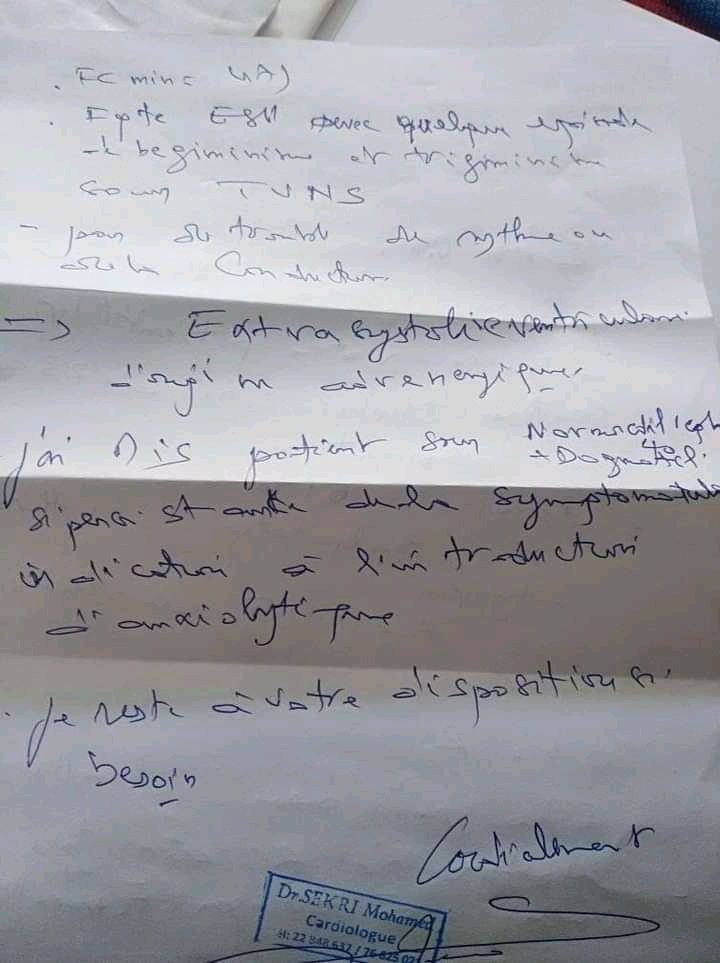 . FC min =
. ESV avec quelques
bigiminisme et trigiminisme
TVNS
- pas de trouble de rythme ou
de la Conduction.
=> Extrasystolie ventriculaire
d'origine adrenergique
j'ai Mis patient sous Normocardil
+ Dogmatil
si persistante de la symptomato
indication à l'introduction
d'anxiolytique
. Je reste à votre disposition si
besoin
Cordialement
Dr.SEKRI Mohamed
Cardiologue